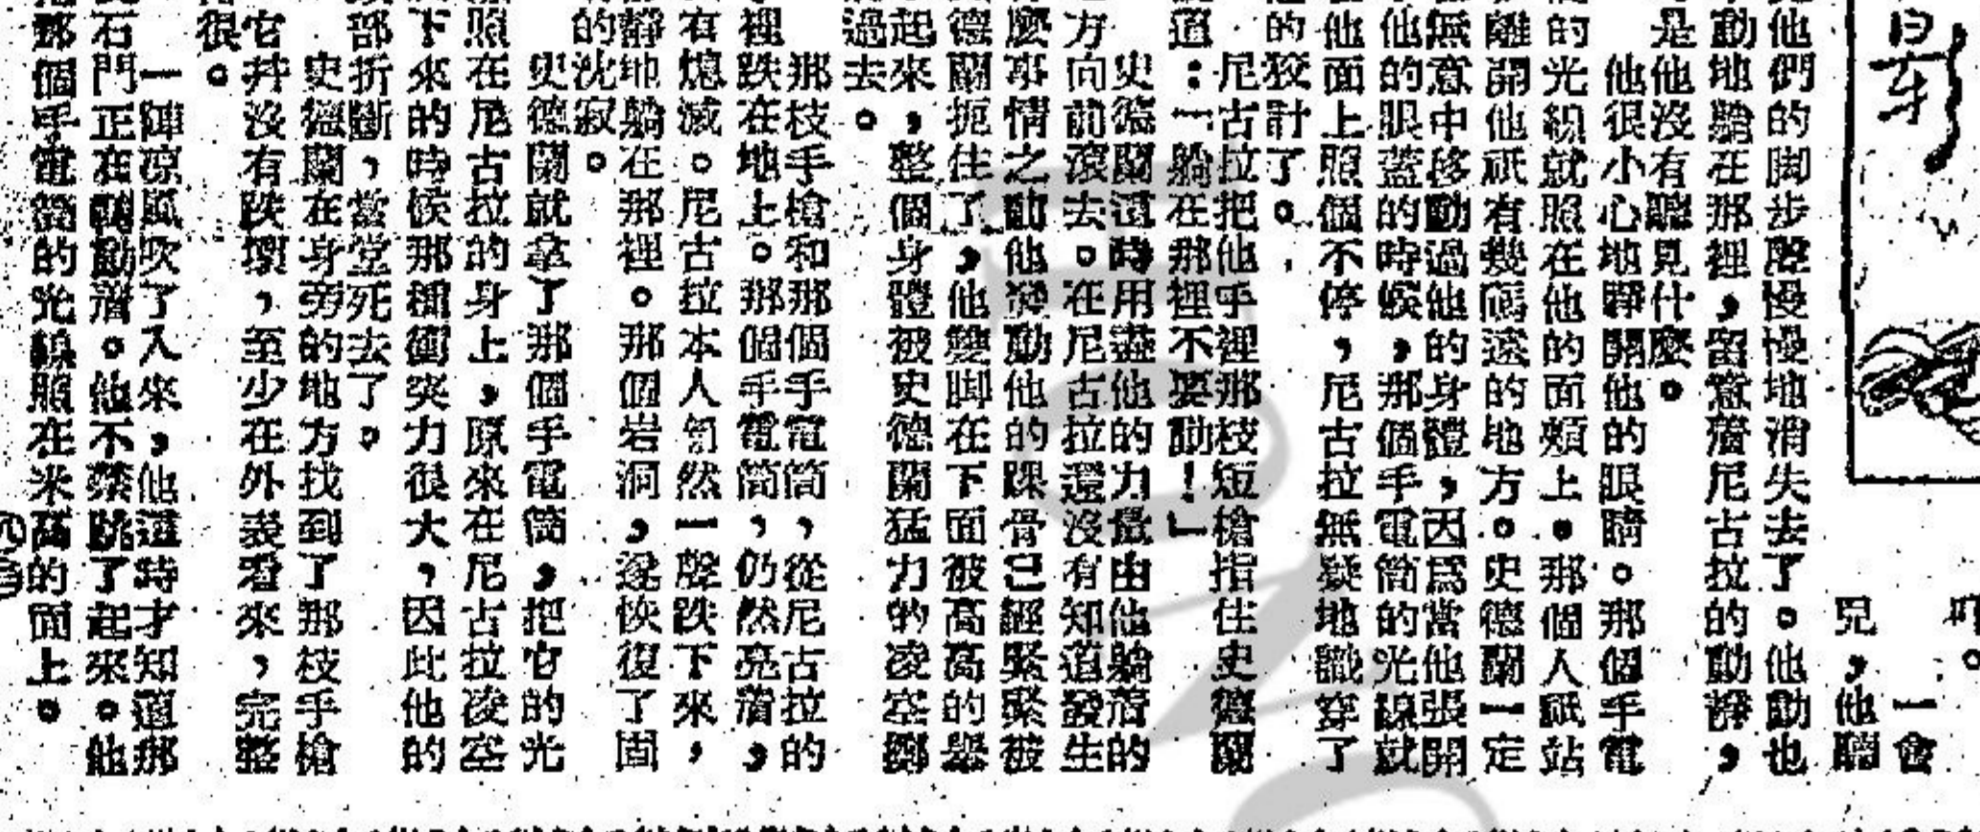 一會
兒，他聽
見他們的脚步聲慢慢地消失去了。他動也
不動地躺在那裡，留意着尼古拉的動靜，
是他沒有聽見什麼。
他很小心地睜開他的眼睛。那個手電
的光線就照在他的面頰上。那個人祇站
離開他祇有幾碼遠的地方。史德蘭一定
無意中移動過他的身體，因爲當他張開
他的眼蓋的時候，那個手電筒的光線就
他面上照個不停，尼古拉無疑地識穿了
的狡計了。
尼古拉把他手裡那枝短槍指住史德蘭
道：「躺在那裡不要動！」
史德蘭這時用盡他的力量由他躺着的
方向前滾去。在尼古拉還沒有知道發生
麼事情之前他發動他的踝骨已經緊緊被
德蘭扼住了，他雙脚在下面被高高的舉
起來，整個身體被史德蘭猛力的凌空擲
過去。
那枝手槍和那個手電筒，從尼古拉的
裡跌在地上。那個手電筒，仍然亮着，
有熄滅。尼古拉本人匐然一聲跌下來，
靜地躺在那裡。那個岩洞，遂恢復了固
的沈寂。
史德蘭就拿了那個手電筒，把它的光
照在尼古拉的身上，原來在尼古拉凌空
下來的時候那種衝突力很大，因此他的
部折斷，當堂死去了。
史德蘭在身旁的地方找到了那枝手槍
它幷沒有跌壞，至少在外表看來，完整
很。
一陣凉風吹了入來，他這時才知道那
石門正在轉動着。他不禁跳了起來。他
那個手電筒的光線照在米高的面上。